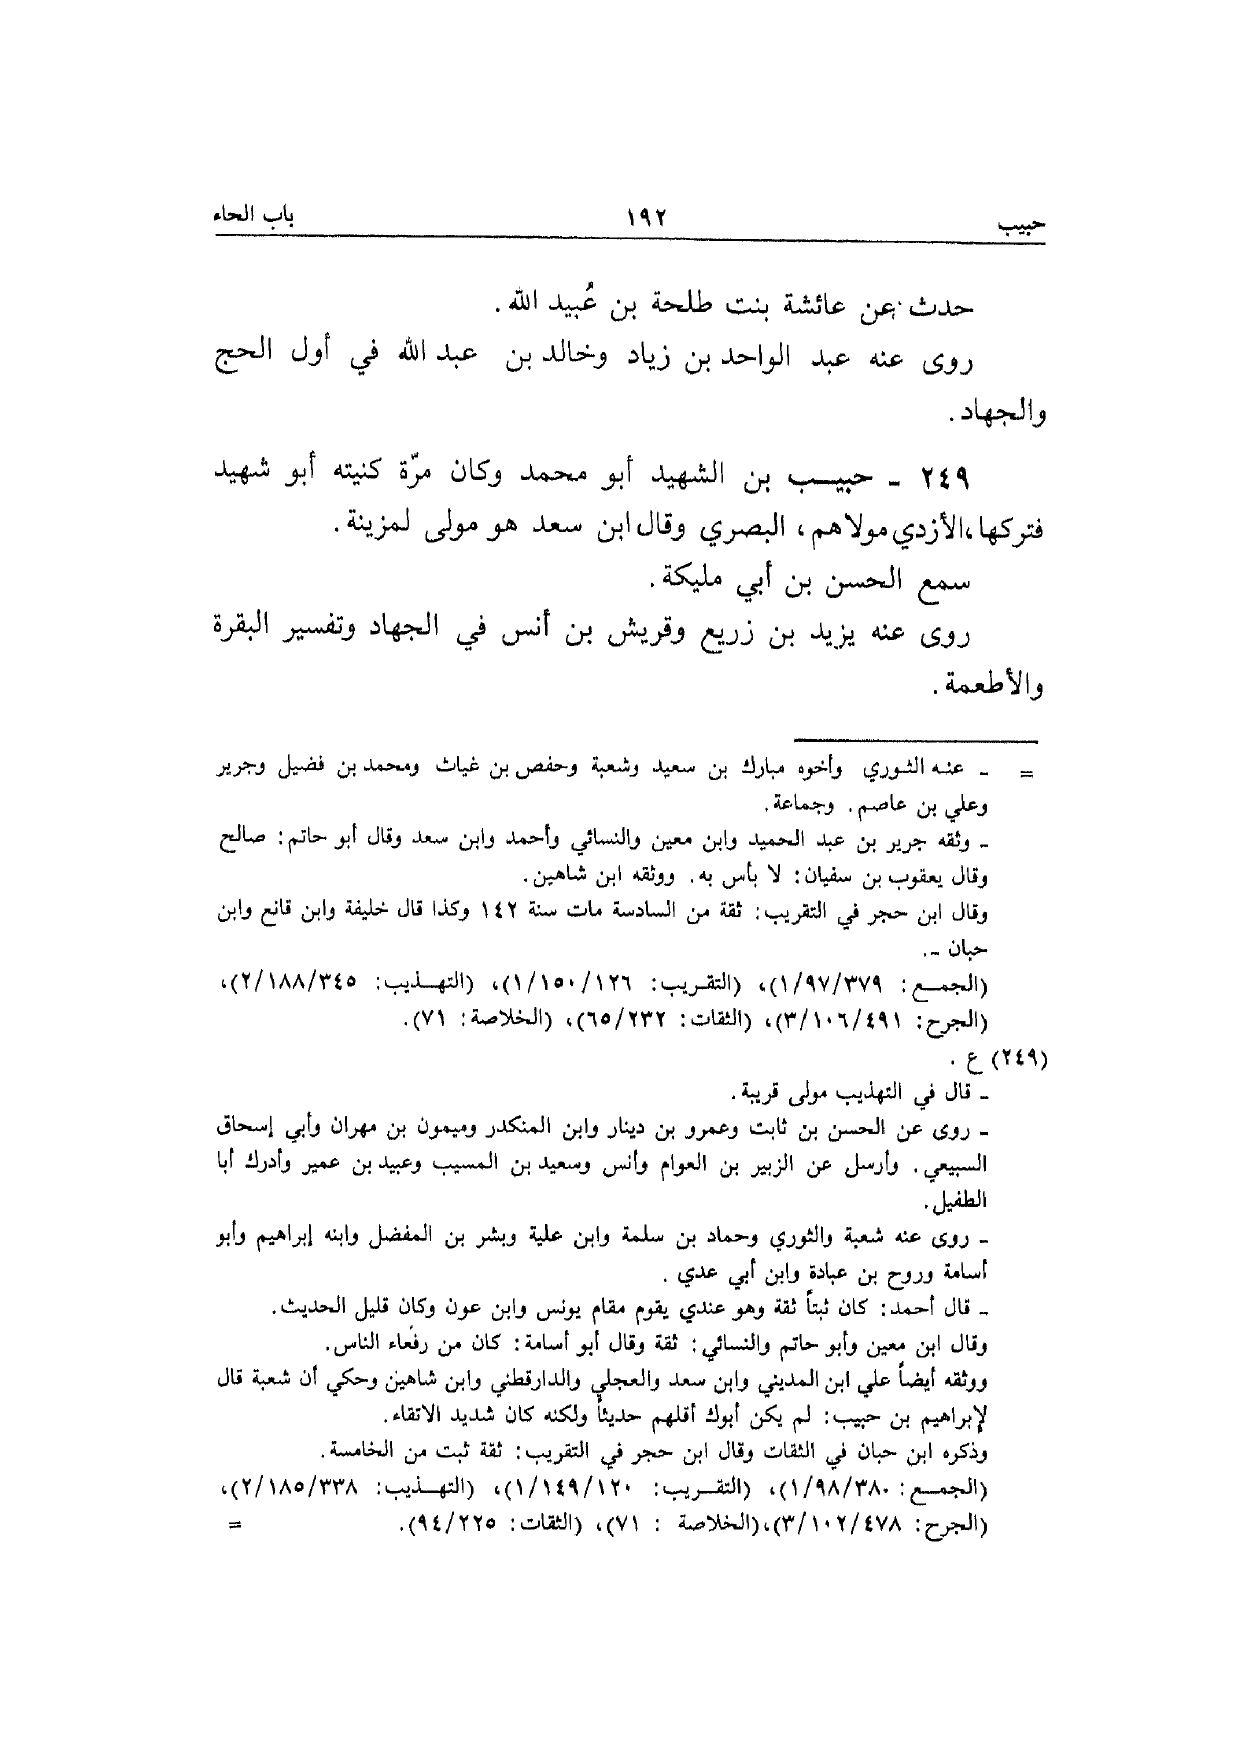 حبيب ١٩٢ باب الحاء
حدث عن عائشة بنت طلحة بن عُبيد الله.
روى عنه عبد الواحد بن زياد وخالد بن عبد الله في أول الحج
والجهاد.
٢٤٩ - حبيب بن الشهيد أبو محمد وكان مرّة كنيته أبو شهيد
فتركها، الأزدي مولاهم، البصري وقال ابن سعد هو مولى لمزينة.
سمع الحسن بن أبي مليكة.
روى عنه يزيد بن زريع وقريش بن أنس في الجهاد وتفسير البقرة
والأطعمة.
= - عنه الثوري وأخوه مبارك بن سعيد وشعبة وحفص بن غياث ومحمد بن فضيل وجرير
وعلي بن عاصم. وجماعة.
- وثقه جرير بن عبد الحميد وابن معين والنسائي وأحمد وابن سعد وقال أبو حاتم: صالح
وقال يعقوب بن سفيان: لا بأس به. ووثقه ابن شاهين.
وقال ابن حجر في التقريب: ثقة من السادسة مات سنة ١٤٢ وكذا قال خليفة وابن قانع وابن
حبان -.
(الجمع: ١/٩٧/٣٧٩)، (التقريب: ١/١٥٠/١٢٦)، (التهذيب: ٢/١٨٨/٣٤٥)،
(الجرح: ٣/١٠٦/٤٩١)، (الثقات: ٦٥/٢٣٢)، (الخلاصة: ٧١).
(٢٤٩) ع.
- قال في التهذيب مولى قريبة.
- روى عن الحسن بن ثابت وعمرو بن دينار وابن المنكدر وميمون بن مهران وأبي إسحاق
السبيعي. وأرسل عن الزبير بن العوام وأنس وسعيد بن المسيب وعبيد بن عمير وأدرك أبا
الطفيل.
- روى عنه شعبة والثوري وحماد بن سلمة وابن علية وبشر بن المفضل وابنه إبراهيم وأبو
أسامة وروح بن عبادة وابن أبي عدي.
- قال أحمد: كان ثبتاً ثقة وهو عندي يقوم مقام يونس وابن عون وكان قليل الحديث.
وقال ابن معين وأبو حاتم والنسائي: ثقة وقال أبو أسامة: كان من رفعاء الناس.
ووثقه أيضاً علي ابن المديني وابن سعد والعجلي والدارقطني وابن شاهين وحكي أن شعبة قال
لإبراهيم بن حبيب: لم يكن أبوك أقلهم حديثاً ولكنه كان شديد الاتقاء.
وذكره ابن حبان في الثقات وقال ابن حجر في التقريب: ثقة ثبت من الخامسة.
(الجمع: ١/٩٨/٣٨٠)، (التقريب: ١/١٤٩/١٢٠)، (التهذيب: ٢/١٨٥/٣٣٨)،
(الجرح: ٣/١٠٢/٤٧٨)، (الخلاصة : ٧١)، (الثقات: ٩٤/٢٢٥). =